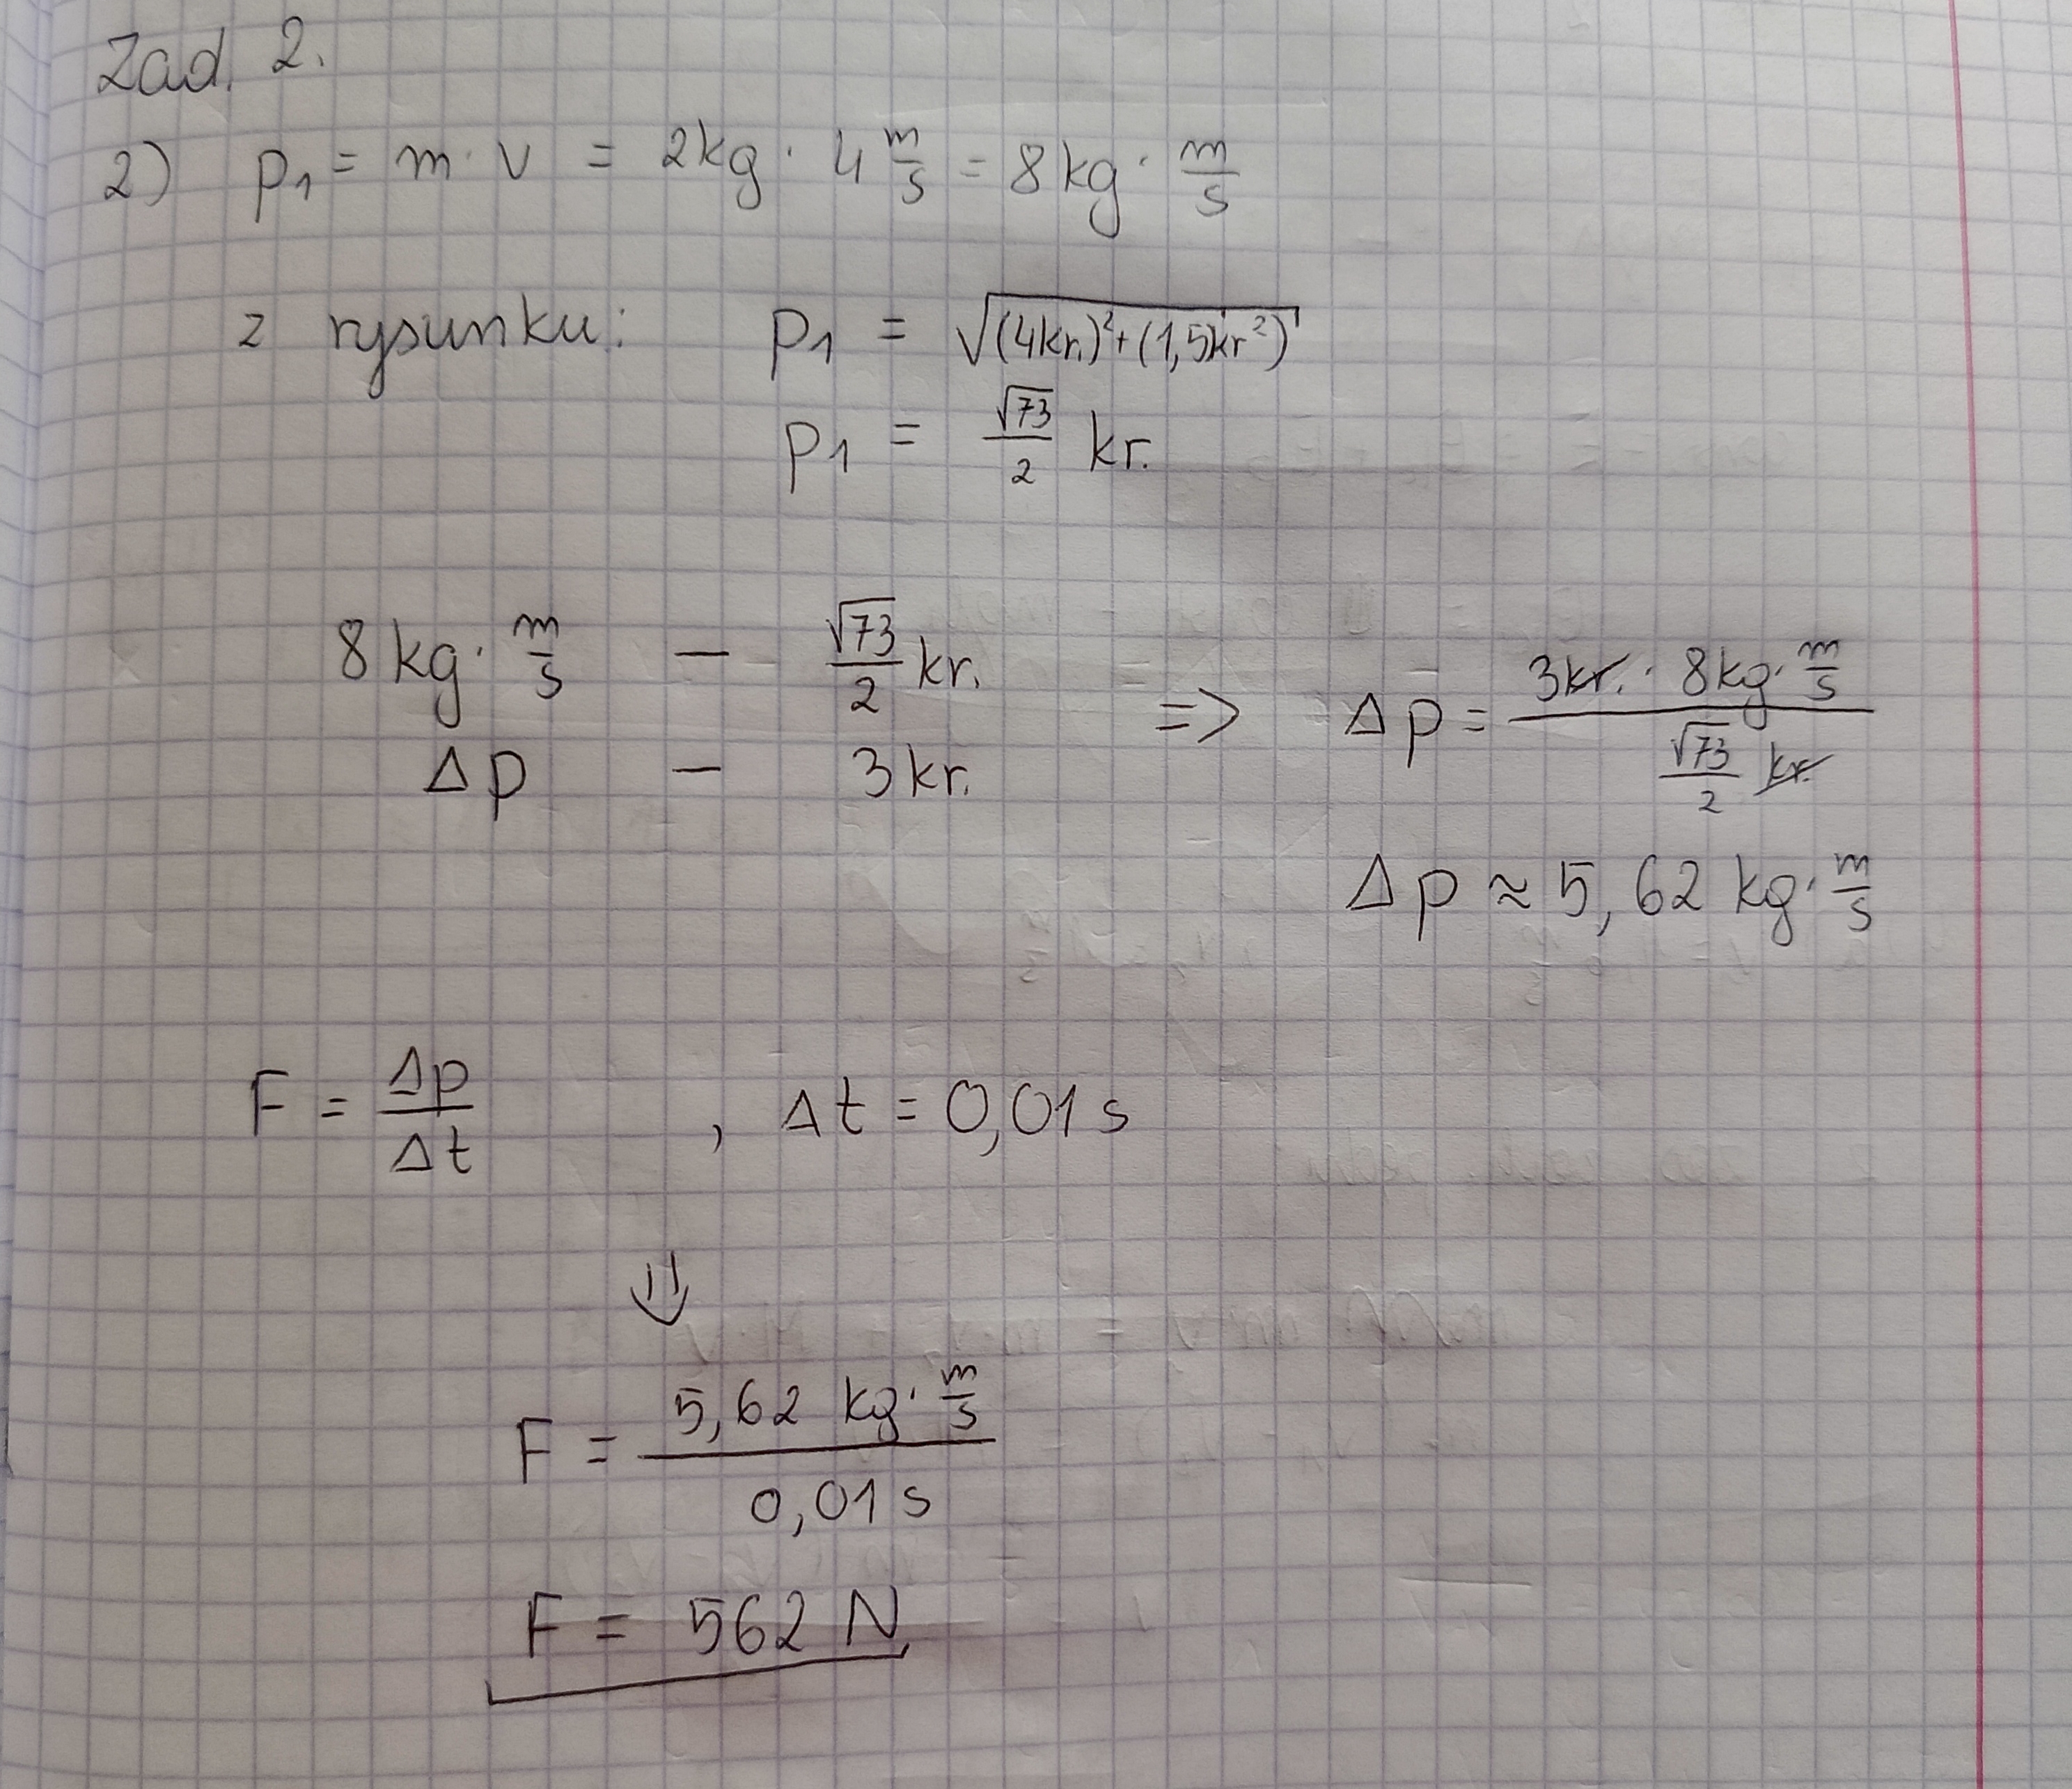 Zad. 2.
2) p₁ = m · v = 2kg · 4 m/s = 8kg · m/s
z rysunku: p₁ = √((4kr.)²+(1,5kr²))
p₁ = √73/2 kr.
8kg · m/s — √73/2 kr.
Δp — 3kr.
=> Δp = (3kr. · 8kg · m/s)/(√73/2 kr.)
Δp ≈ 5,62 kg · m/s
F = Δp/Δt , Δt = 0,01s
⇓
F = (5,62 kg · m/s)/(0,01s)
F = 562 N